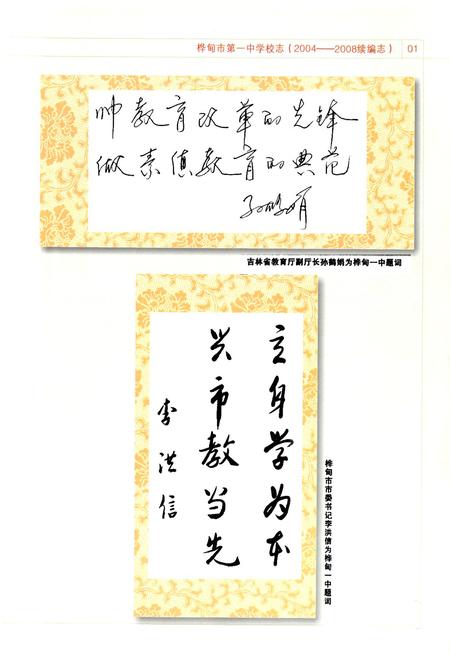 桦甸市第一中学校志（2004——2008续编志） 01
帅教育改革的先锋
做素质教育的典范
孙鹤娟
吉林省教育厅副厅长孙鹤娟为桦甸一中题词
立身学为本
兴市教当先
李洪信
桦甸市市委书记李洪信为桦甸一中题词